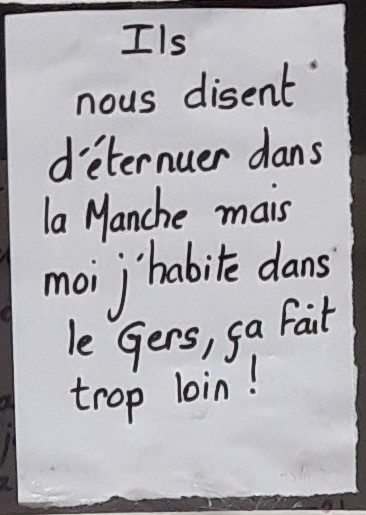 Ils
nous disent
d'éternuer dans
la Manche mais
moi j'habite dans
le Gers, ça fait
trop loin !